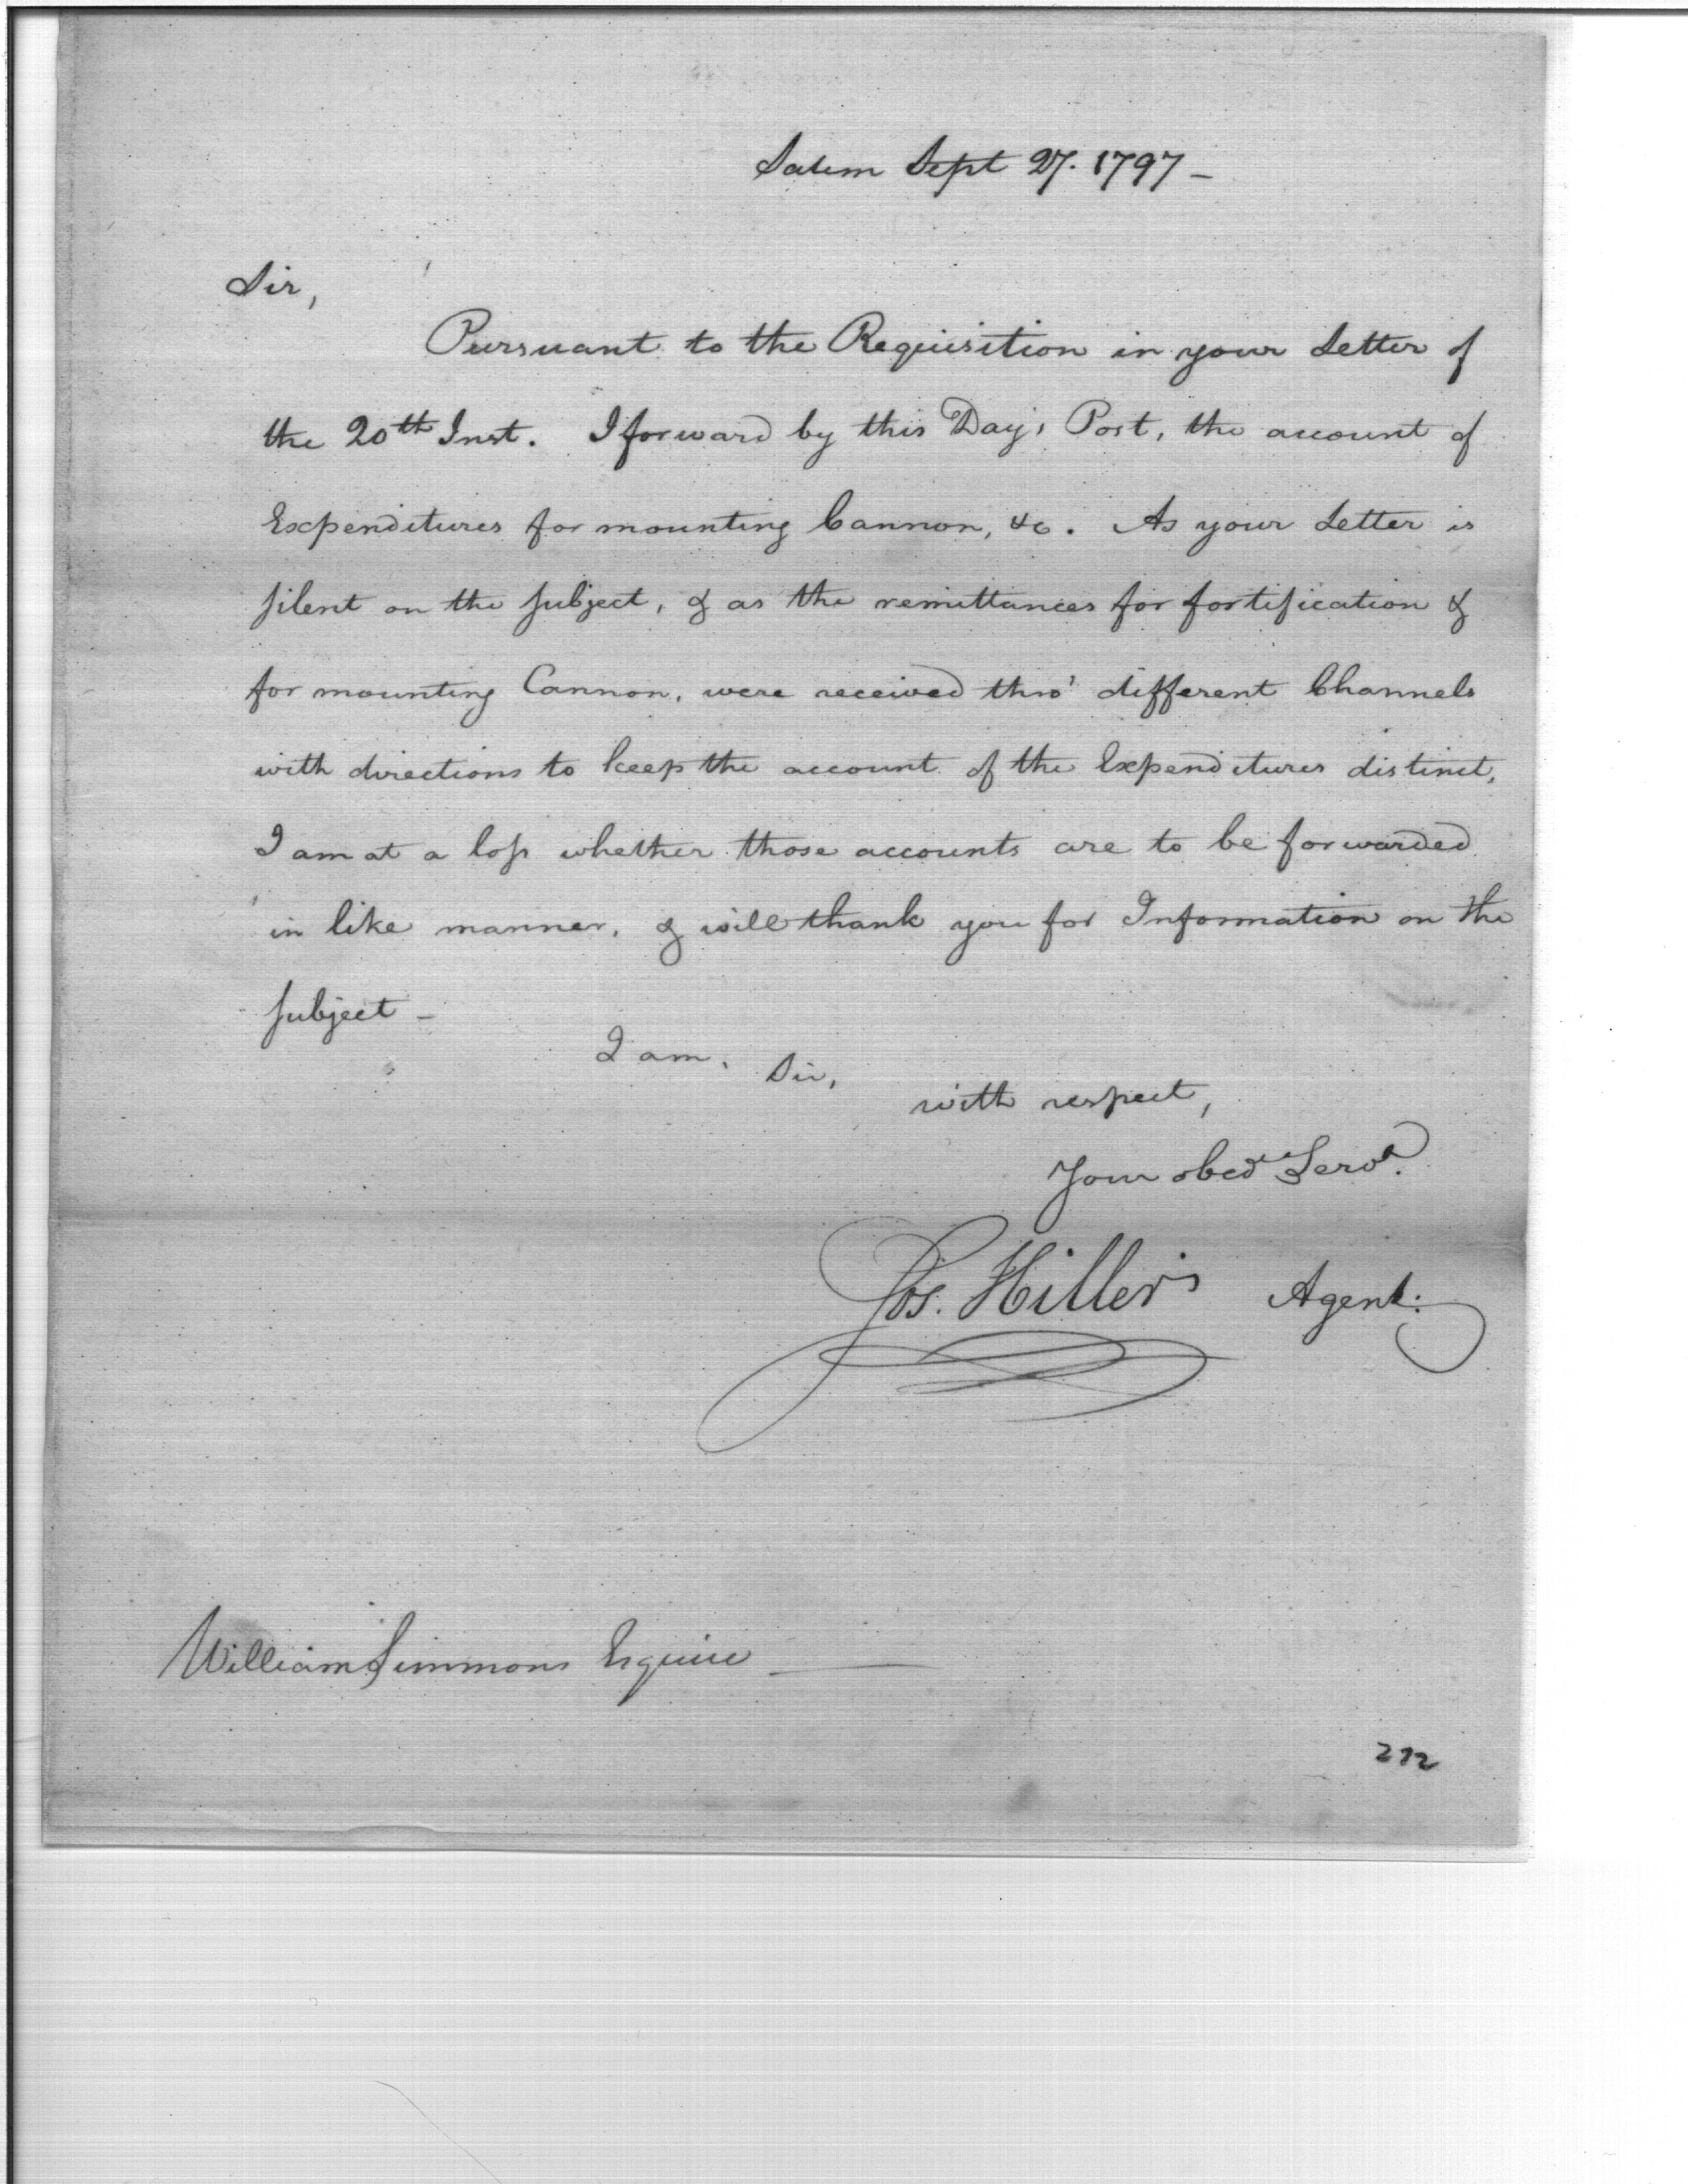 Salem Sept 27. 1797 -
Sir,
Pursuant to the Requisition in your Letter of
the 20th Inst. I forward by this Day's Post, the account of
Expenditures for mounting Cannon, &c. As your Letter is
silent on the subject, & as the remittances for fortification &
for mounting Cannon, were received thro' different Channels
with directions to keep the account of the Expenditures distinct,
I am at a loss whether those accounts are to be forwarded
in like manner, & will thank you for Information on the
subject -
I am, Sir,
with respect,
Your obedt Servt.
Jos. Hiller Agent.
William Simmons Esquire
272